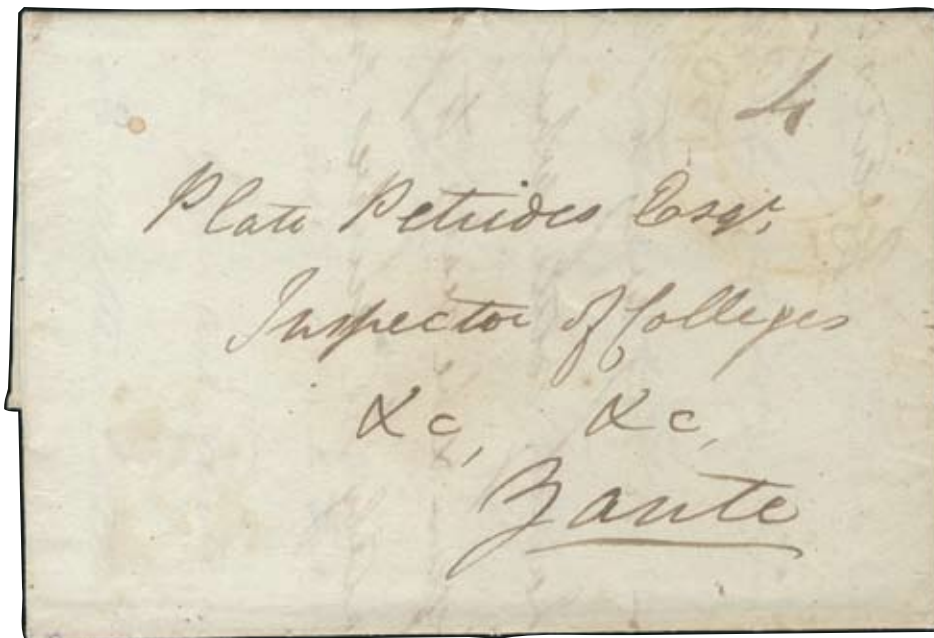 4
Plato Petrides Esqr,
Inspector of Colleges
&c, &c,
Zante